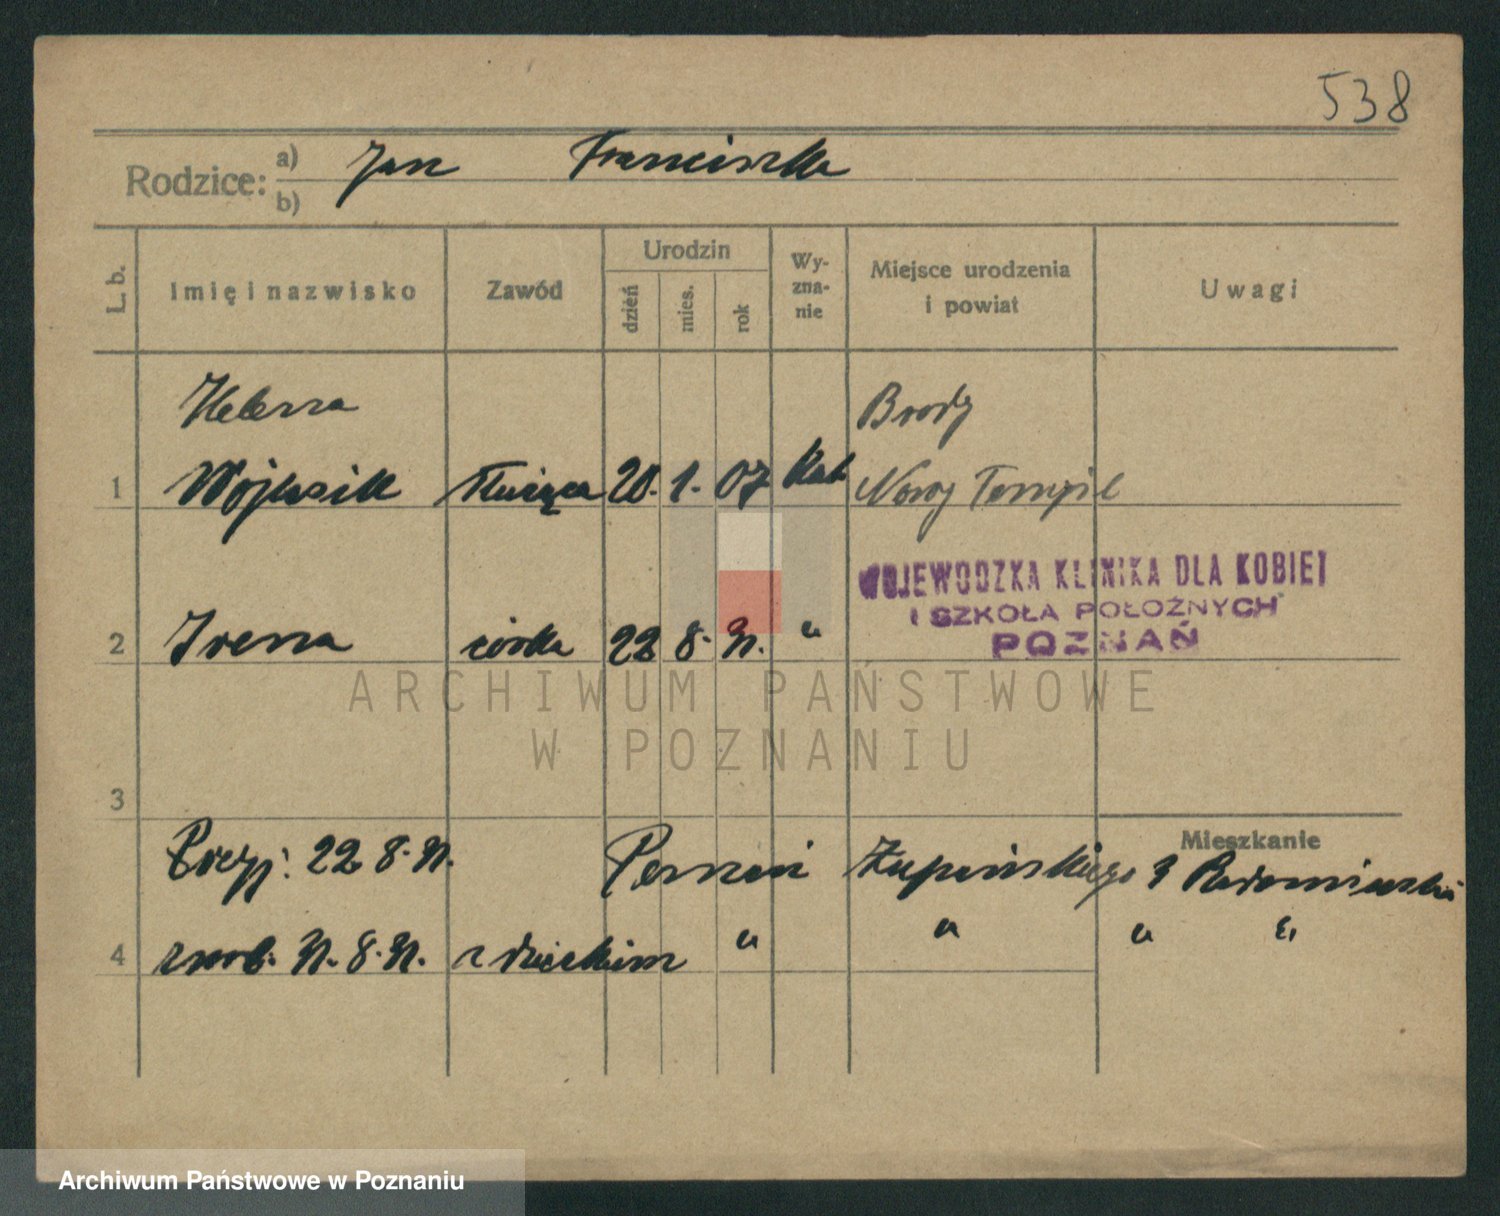 538
Rodzice: a) Jan Franciszka
b)
L. b.
Imię i nazwisko
Zawód
Urodzin
dzień
mies.
rok
Wy-
zna-
nie
Miejsce urodzenia
i powiat
Uwagi
Helena Brody
1 Wójcik służąca 20. 1. 07 kat Nowy Tomyśl
WOJEWÓDZKA KLINIKA DLA KOBIET
I SZKOŁA POŁOŻNYCH
POZNAŃ
2 Irena córka 22 8. 31. "
ARCHIWUM PAŃSTWOWE
W POZNANIU
3
Mieszkanie
22 8. 31. Poznań Żupańskiego
4 31. 8. 31. z dzieckiem " " " "
Archiwum Państwowe w Poznaniu